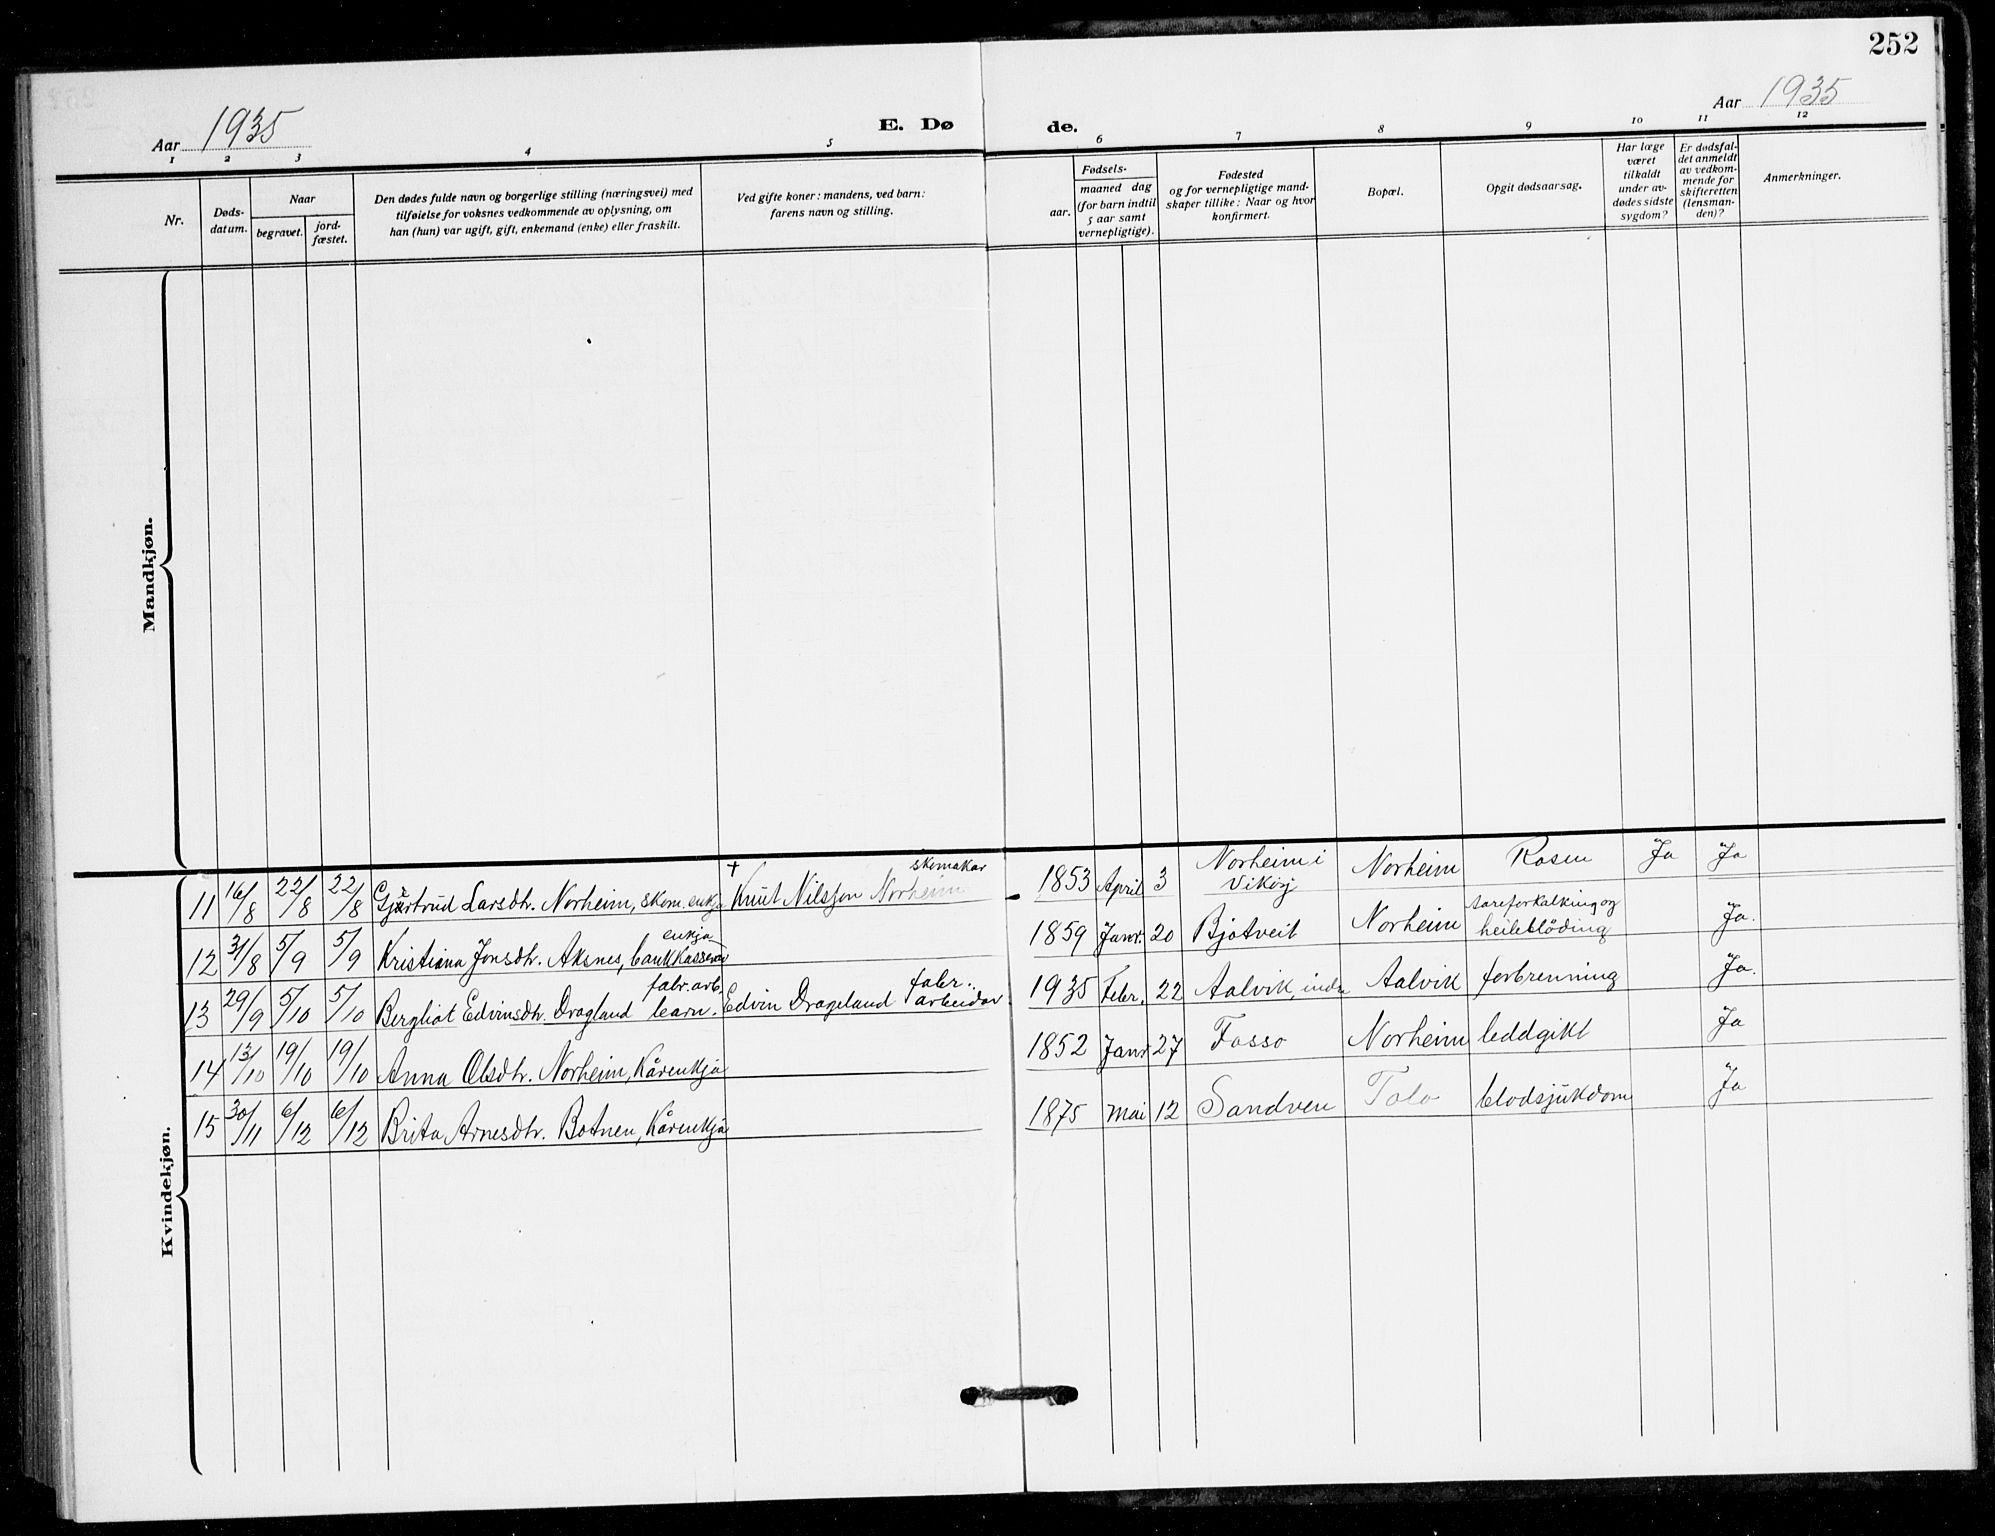 252
Aar 1935
E. Dø
de.
Aar 1935
1 2 3 4 5 6 7 8 9 10 11 12
Nr.
Døds-
datum.
Naar
begravet.
jord-
fæstet.
Den dødes fulde navn og borgerlige stilling (næringsvei) med
tilføielse for voksnes vedkommende av oplysning, om
han (hun) var ugift, gift, enkemand (enke) eller fraskilt.
Ved gifte koner: mandens, ved barn:
farens navn og stilling.
Fødsels-
aar.
maaned dag
(for barn indtil
5 aar samt
vernepligtige).
Fødested
og for vernepligtige mand-
skaper tillike: Naar og hvor
konfirmert.
Bopæl.
Opgit dødsaarsag.
Har læge
været
tilkaldt
under av-
dødes sidste
sygdom?
Er dødsfal-
det anmeldt
av vedkom-
mende for
skifteretten
(lensman-
den)?
Anmerkninger.
Mandkjøn.
Kvindekjøn.
11 16/8 22/8 22/8 Gjertrud Larsdtr. Norheim, skom. enkja † Knut Nilsson Norheim skomakar 1853 April 3 Norheim i Vikøy Norheim Rosen Ja Ja
12 31/8 5/9 5/9 Kristiana Jonsdtr. Aksnes, bankkasserar enkja 1859 Janr. 20 Bjotveit Norheim aareforkalking og heileblöding Ja.
13 29/9 5/10 5/10 Bergliot Edvinsdtr. Dragland fabr. arb. barn. Edvin Drageland fabr. arbeidar. 1935 Febr. 22 Aalvik, indre Aalvik forbrenning Ja.
14 13/10 19/10 19/10 Anna Olsdtr. Norheim, Kårenkja 1852 Janr. 27 Fosso Norheim leddgikt Ja
15 30/11 6/12 6/12 Brita Arnesdtr. Botnen, Kårenkja 1875 Mai 12 Sandven Tolo blodsjukdom Ja